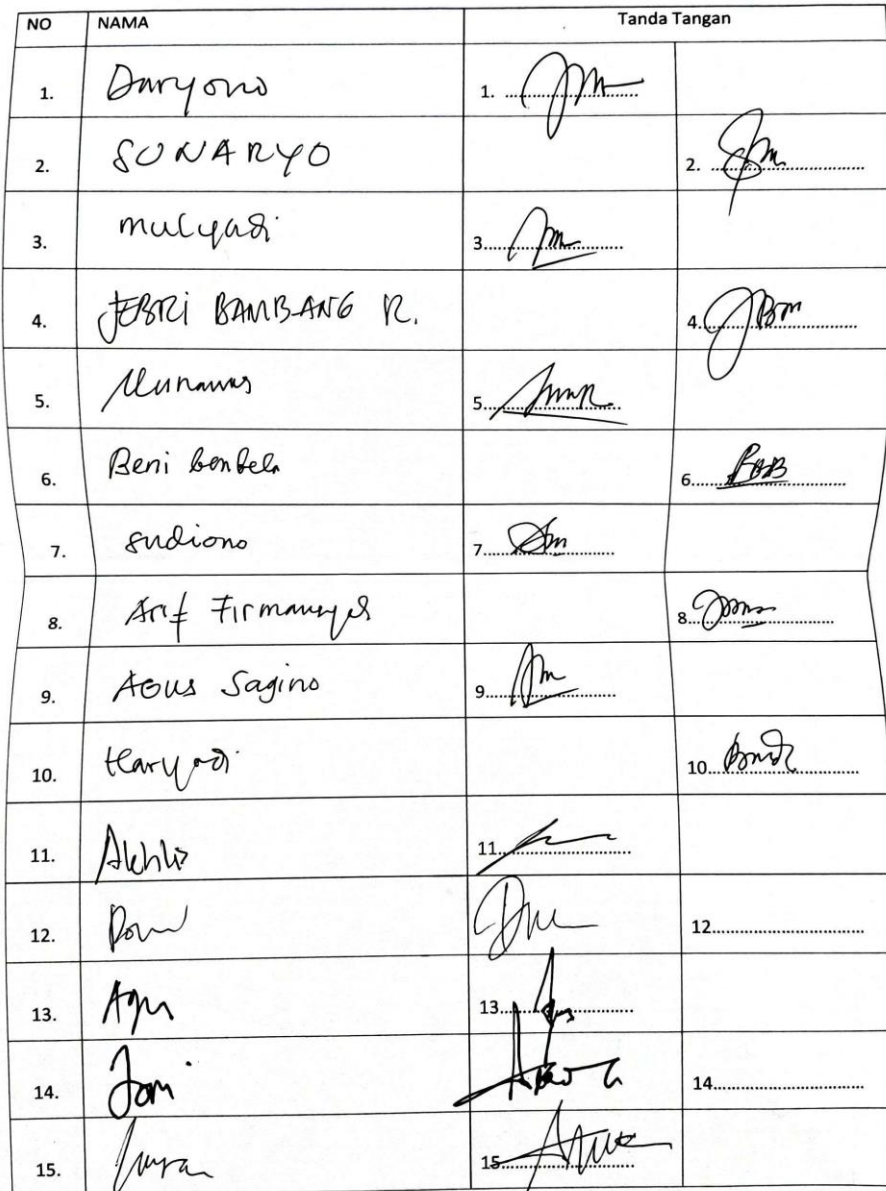 NO NAMA Tanda Tangan
1. Daryono 1.
2. SUNARYO 2.
3. mulyadi 3.
4. JEBRI BAMBANG R. 4.
5. Munawar 5.
6. Beni 6.
7. sudiono 7.
8. Arif Firmansyah 8.
9. AGUS Sagino 9.
10. Haryadi 10.
11. Akhlis 11.
12. 12.
13. Agus 13.
14. Joni 14.
15. 15.